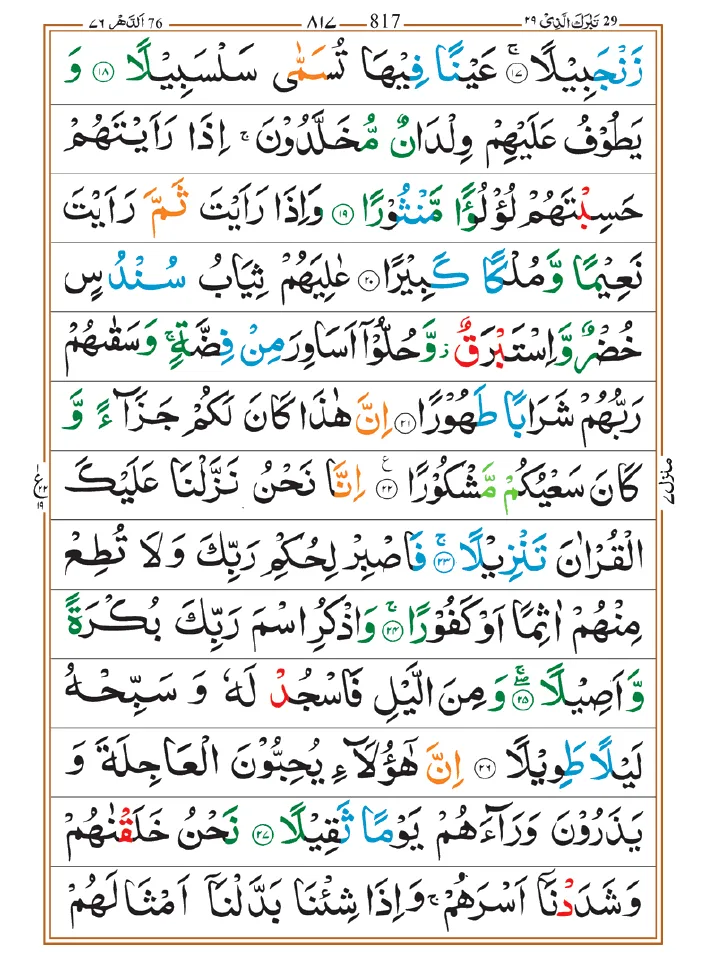 29 تَبٰرَكَ الَّذِىْ ٢٩
817 ٨١٧
76 اَلدَّهْر ٧٦
زَنْجَبِيْلًا ۚ‏ ١٧ عَيْنًا فِيْهَا تُسَمّٰى سَلْسَبِيْلًا ١٨ وَ
يَطُوْفُ عَلَيْهِمْ وِلْدَانٌ مُّخَلَّدُوْنَ ۚ اِذَا رَاَيْتَهُمْ
حَسِبْتَهُمْ لُؤْلُؤًا مَّنْثُوْرًا ١٩ وَاِذَا رَاَيْتَ ثَمَّ رَاَيْتَ
نَعِيْمًا وَّمُلْكًا كَبِيْرًا ٢٠ عٰلِيَهُمْ ثِيَابُ سُنْدُسٍ
خُضْرٌ وَّاِسْتَبْرَقٌ ۫ وَّحُلُّوْۤا اَسَاوِرَ مِنْ فِضَّةٍ ۚ وَسَقٰىهُمْ
رَبُّهُمْ شَرَابًا طَهُوْرًا ٢١ اِنَّ هٰذَا كَانَ لَكُمْ جَزَآءً وَّ
كَانَ سَعْيُكُمْ مَّشْكُوْرًا ٢٢ اِنَّا نَحْنُ نَزَّلْنَا عَلَيْكَ
الْقُرْاٰنَ تَنْزِيْلًا ۚ ٢٣ فَاصْبِرْ لِحُكْمِ رَبِّكَ وَلَا تُطِعْ
مِنْهُمْ اٰثِمًا اَوْ كَفُوْرًا ۚ ٢٤ وَاذْكُرِ اسْمَ رَبِّكَ بُكْرَةً
وَّاَصِيْلًا ۖۚ ٢٥ وَمِنَ الَّيْلِ فَاسْجُدْ لَهٗ وَ سَبِّحْهُ
لَيْلًا طَوِيْلًا ٢٦ اِنَّ هٰۤؤُلَآءِ يُحِبُّوْنَ الْعَاجِلَةَ وَ
يَذَرُوْنَ وَرَآءَهُمْ يَوْمًا ثَقِيْلًا ٢٧ نَحْنُ خَلَقْنٰهُمْ
وَشَدَدْنَاۤ اَسْرَهُمْ ۚ وَاِذَا شِئْنَا بَدَّلْنَاۤ اَمْثَالَهُمْ
منزل ٧
ع ٢٢ ١٩